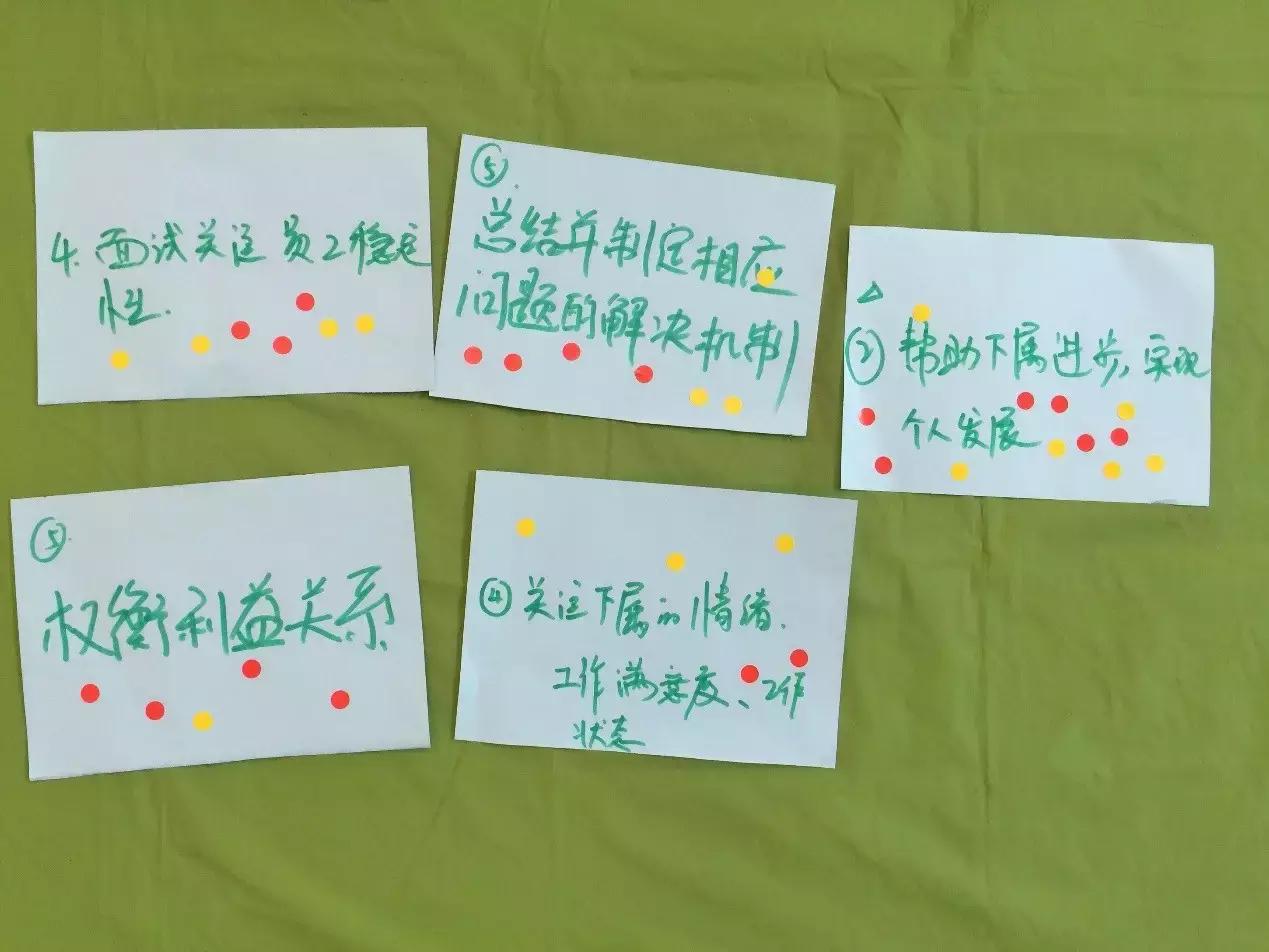 4. 面试关注员工稳定
性.
⑤.
总结并制定相应
问题的解决机制
△
② 帮助下属进步,实现
个人发展
⑤.
权衡利益关系
④ 关注下属的情绪.
工作满意度、工作
状态